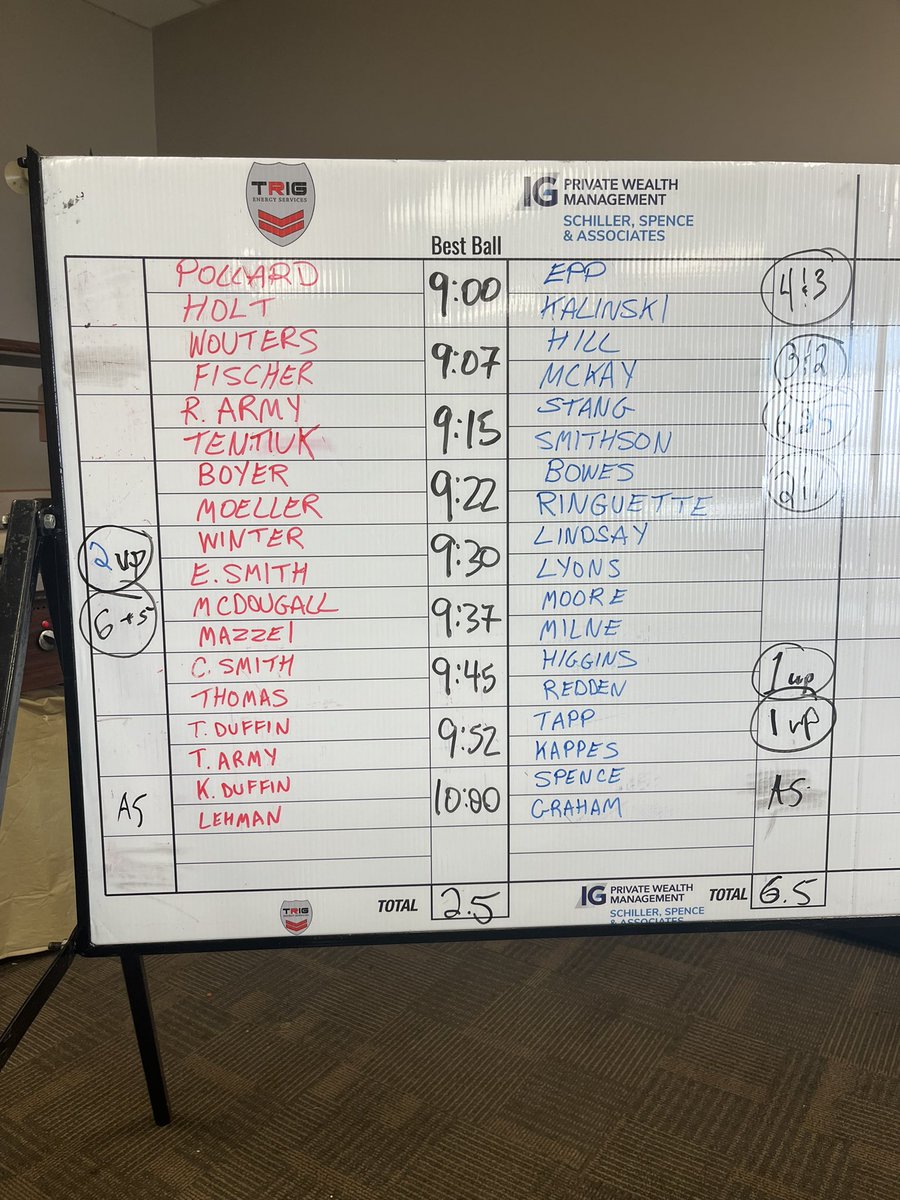 TRIG
ENERGY SERVICES
IG PRIVATE WEALTH
MANAGEMENT
SCHILLER, SPENCE
& ASSOCIATES
Best Ball
POLLARD 9:00 EPP 4&3
HOLT KALINSKI
WOUTERS 9:07 HILL 3&2
FISCHER MCKAY
R. ARMY 9:15 STANG 6&5
TENTIUK SMITHSON
BOYER 9:22 BOWES 2&1
MOELLER RINGUETTE
2 UP WINTER 9:30 LINDSAY
E. SMITH LYONS
6+5 MCDOUGALL 9:37 MOORE
MAZZEI MILNE
C. SMITH 9:45 HIGGINS 1 up
THOMAS REDDEN
T. DUFFIN 9:52 TAPP 1 UP
T. ARMY KAPPES
AS K. DUFFIN 10:00 SPENCE AS
LEHMAN GRAHAM
TRIG TOTAL 2.5 IG PRIVATE WEALTH
MANAGEMENT TOTAL 6.5
SCHILLER, SPENCE
& ASSOCIATES